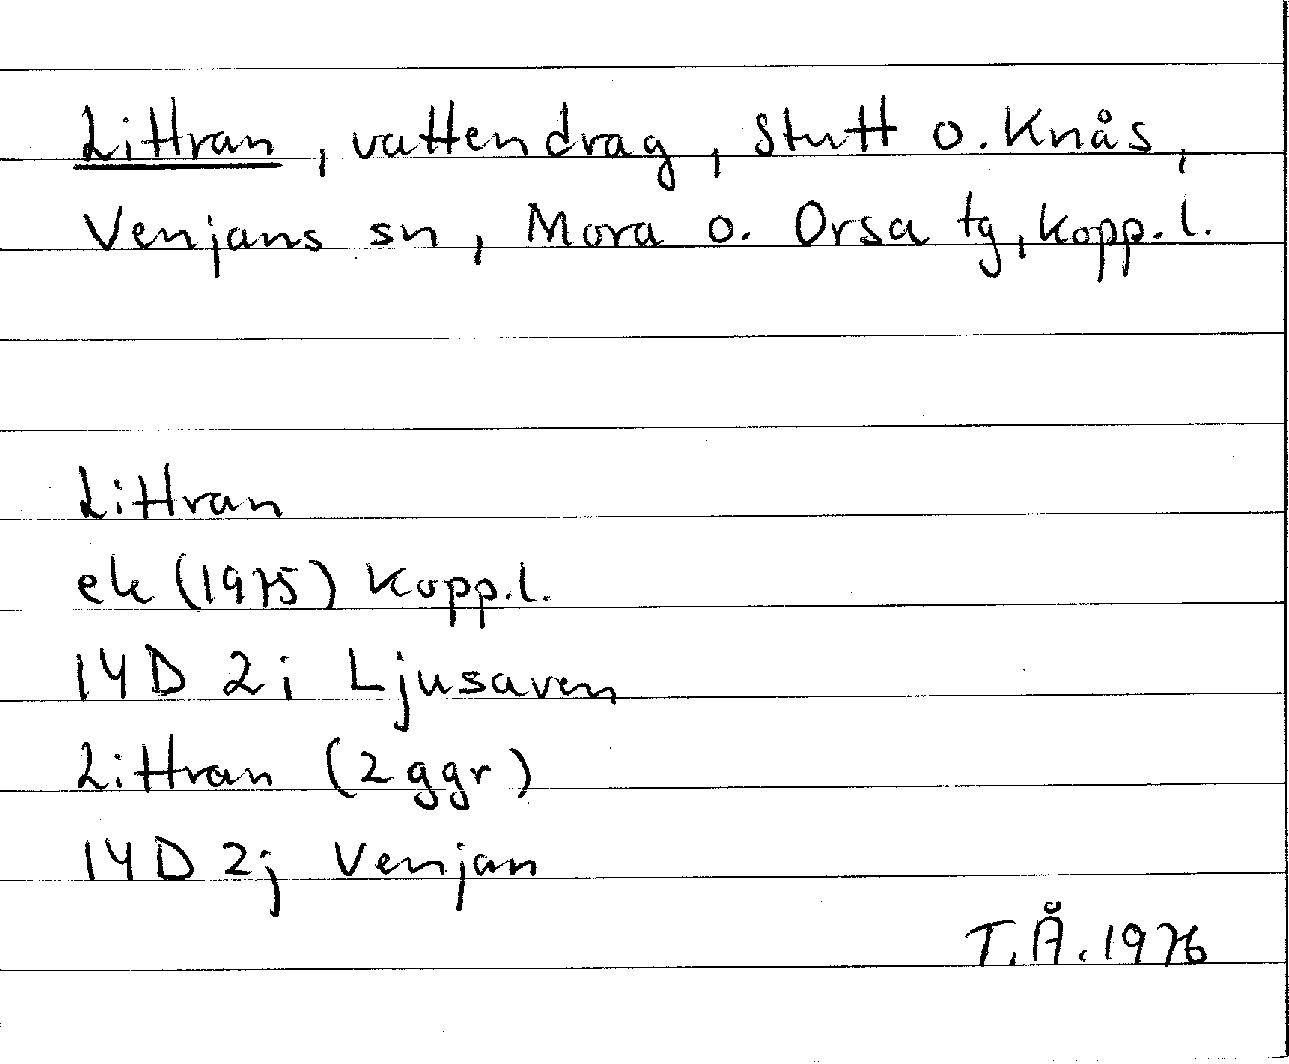 Littran, vattendrag, Stutt o. Knås,
Venjans sn, Mora o. Orsa tg, Kopp. l.
Littran
ek (1975) Kopp.l.
14D 2i Ljusaven
Littran (2 ggr)
14D 2j Venjan
T.Å. 1976